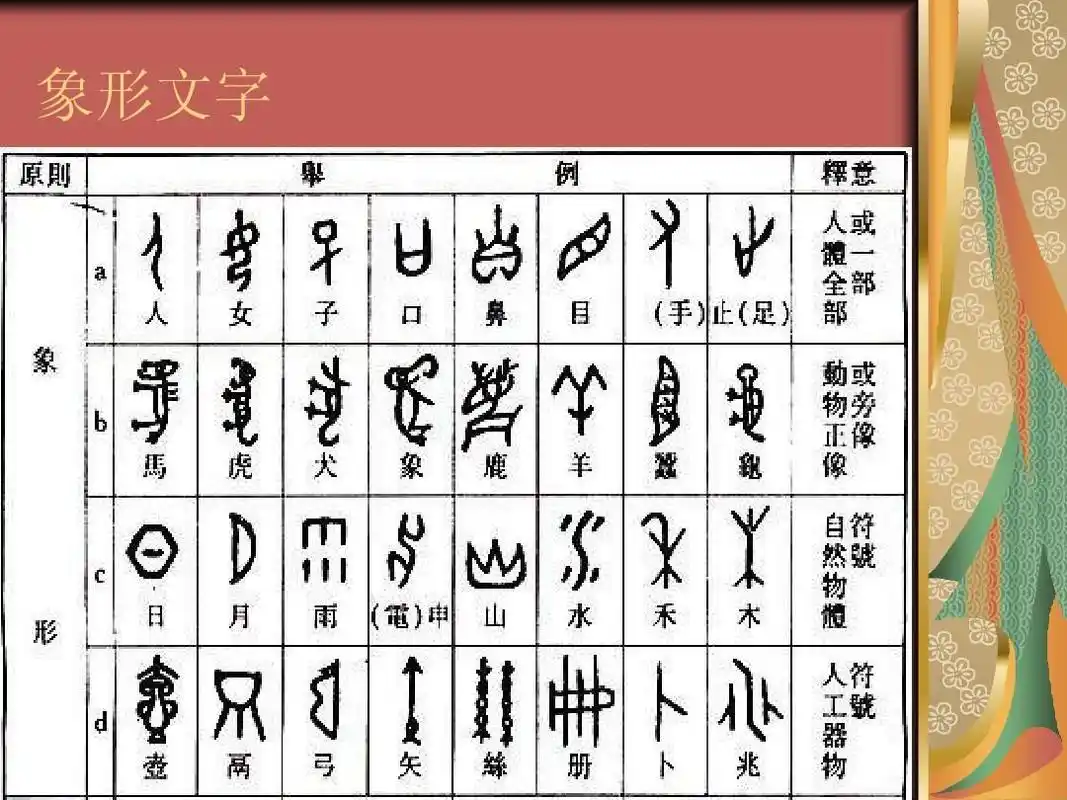 象形文字
原則 舉 例 釋意
象形
a 人 女 子 口 鼻 目 (手) 止(足)
人體全部
或一部
b 馬 虎 犬 象 鹿 羊 蠶 龜
動物正像
或旁像
c 日 月 雨 (電)申 山 水 禾 木
自然物體
符號
d 壺 鬲 弓 矢 絲 册 卜 兆
人工器物
符號